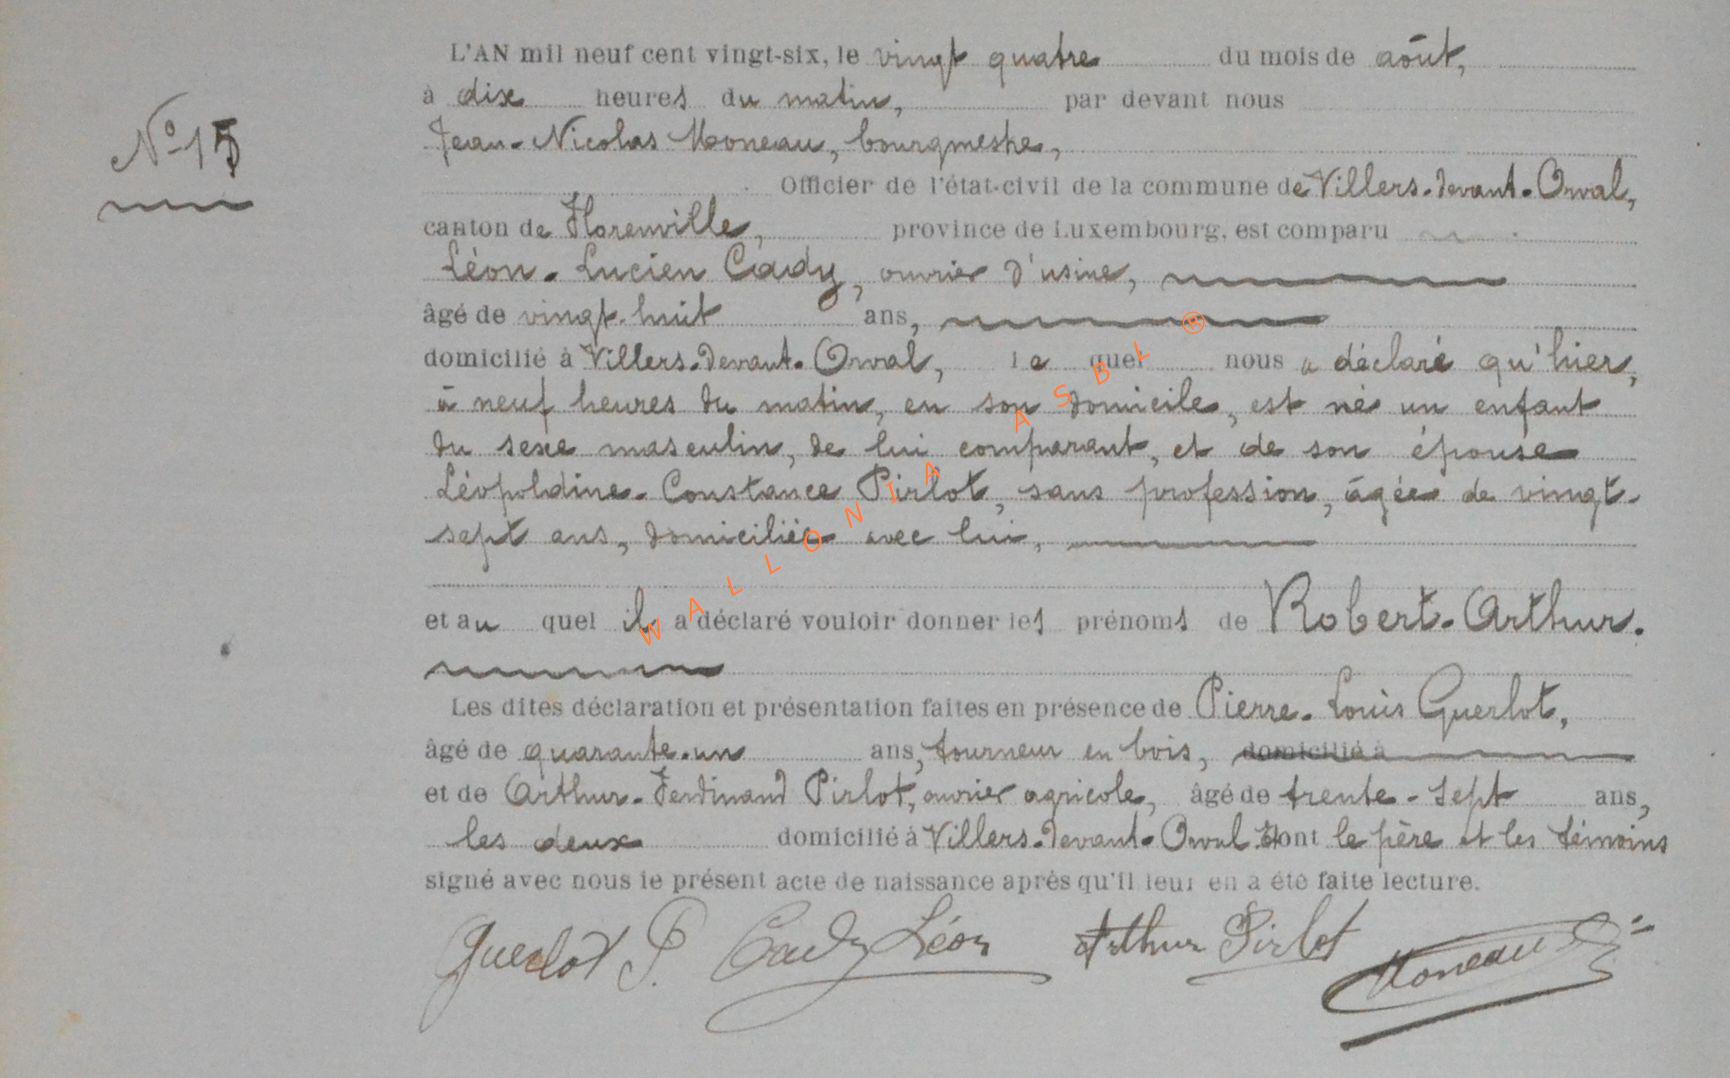 L'AN mil neuf cent vingt-six, le vingt quatre du mois de août,
à dix heures du matin, par devant nous
N° 15
Jean-Nicolas Moneau, bourgmestre,
Officier de l'état-civil de la commune de Villers-devant-Orval,
canton de Florenville, province de Luxembourg, est comparu
Léon-Lucien Cady, ouvrier d'usine,
âgé de vingt-huit ans,
domicilié à Villers-devant-Orval, le quel nous a déclaré qu'hier,
à neuf heures du matin, en son domicile, est né un enfant
du sexe masculin, de lui comparant, et de son épouse
Léopoldine-Constance Pirlot, sans profession, âgée de vingt-
sept ans, domiciliée avec lui,
et au quel il a déclaré vouloir donner les prénoms de Robert-Arthur.
Les dites déclaration et présentation faites en présence de Pierre-Louis Guerlot,
âgé de quarante-un ans, tourneur en bois, domicilié à
et de Arthur-Ferdinand Pirlot, ouvrier agricole, âgé de trente-sept ans,
les deux domicilié à Villers-devant-Orval. Et ont le père et les témoins
signé avec nous le présent acte de naissance après qu'il leur en a été faite lecture.
Guerlot P. Cady Léon Arthur Pirlot Moneau
WALLONIA ASBL ®